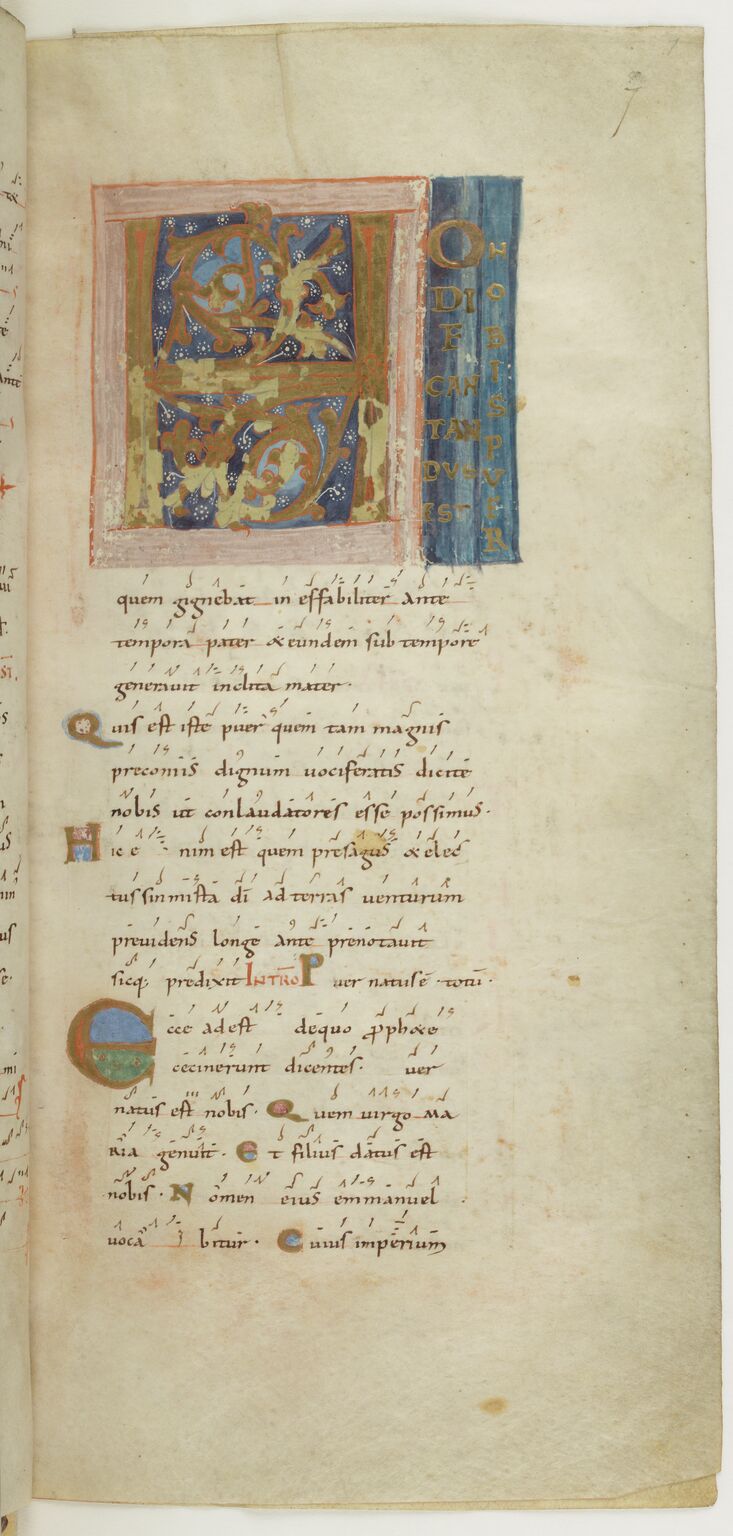 7
H O
DI
E
CAN
TAN
DVS
EST
NOBIS PVER
quem gignebat in effabiliter ante
tempora pater & eundem sub tempore
generauit inclita mater·
Quis est iste puer quem tam magnis
preconiis dignum uociferatis dicite
nobis ut conlaudatores esse possimus·
Hic enim est quem presagus & elec
tus sinmista dī ad terras venturum
preuidens longe ante prenotauit
sicq; predixit INTRO Puer natus ē· totū·
Ecce adest dequo pphae
cecinerunt dicentes· uer
natus est nobis· Quem uirgo MA
RIA genuit· Et filius datus est
nobis· Nomen eius emmanuel
uocabitur· Cuius imperium